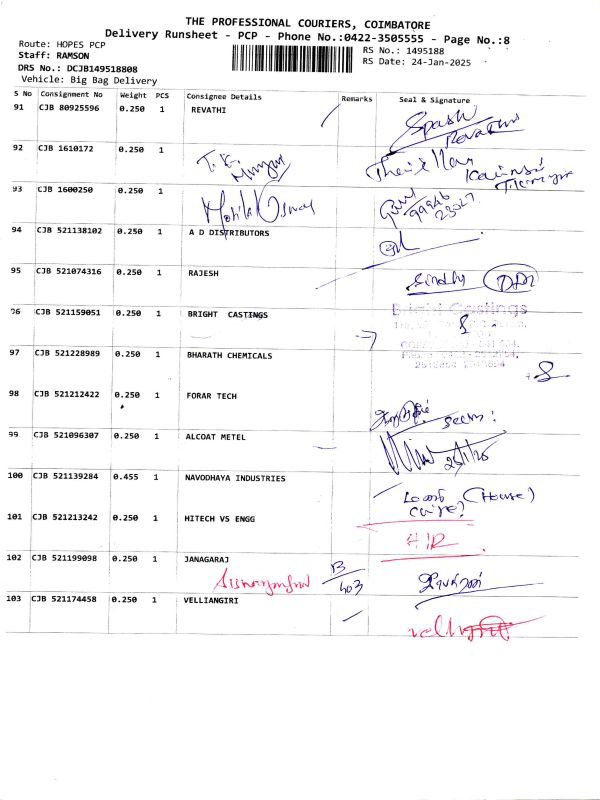 THE PROFESSIONAL COURIERS, COIMBATORE
Delivery Runsheet - PCP - Phone No.:0422-3505555 - Page No.:8
Route: HOPES PCP
RS No.: 1495188
Staff: RAMSON
RS Date: 24-Jan-2025
DRS No.: DCJB149518808
Vehicle: Big Bag Delivery
S No Consignment No Weight PCS Consignee Details Remarks Seal & Signature
91 CJB 80925596 0.250 1 REVATHI
Revathi
92 CJB 1610172 0.250 1
T.K.
93 CJB 1600250 0.250 1
99946
23027
94 CJB 521138102 0.250 1 A D DISTRIBUTORS
95 CJB 521074316 0.250 1 RAJESH
Sindhu
96 CJB 521159051 0.250 1 BRIGHT CASTINGS
Bright Castings
97 CJB 521228989 0.250 1 BHARATH CHEMICALS
98 CJB 521212422 0.250 1 FORAR TECH
99 CJB 521096307 0.250 1 ALCOAT METEL
25/1/25
100 CJB 521139284 0.455 1 NAVODHAYA INDUSTRIES
(House)
101 CJB 521213242 0.250 1 HITECH VS ENGG
102 CJB 521199098 0.250 1 JANAGARAJ
B
403
103 CJB 521174458 0.250 1 VELLIANGIRI